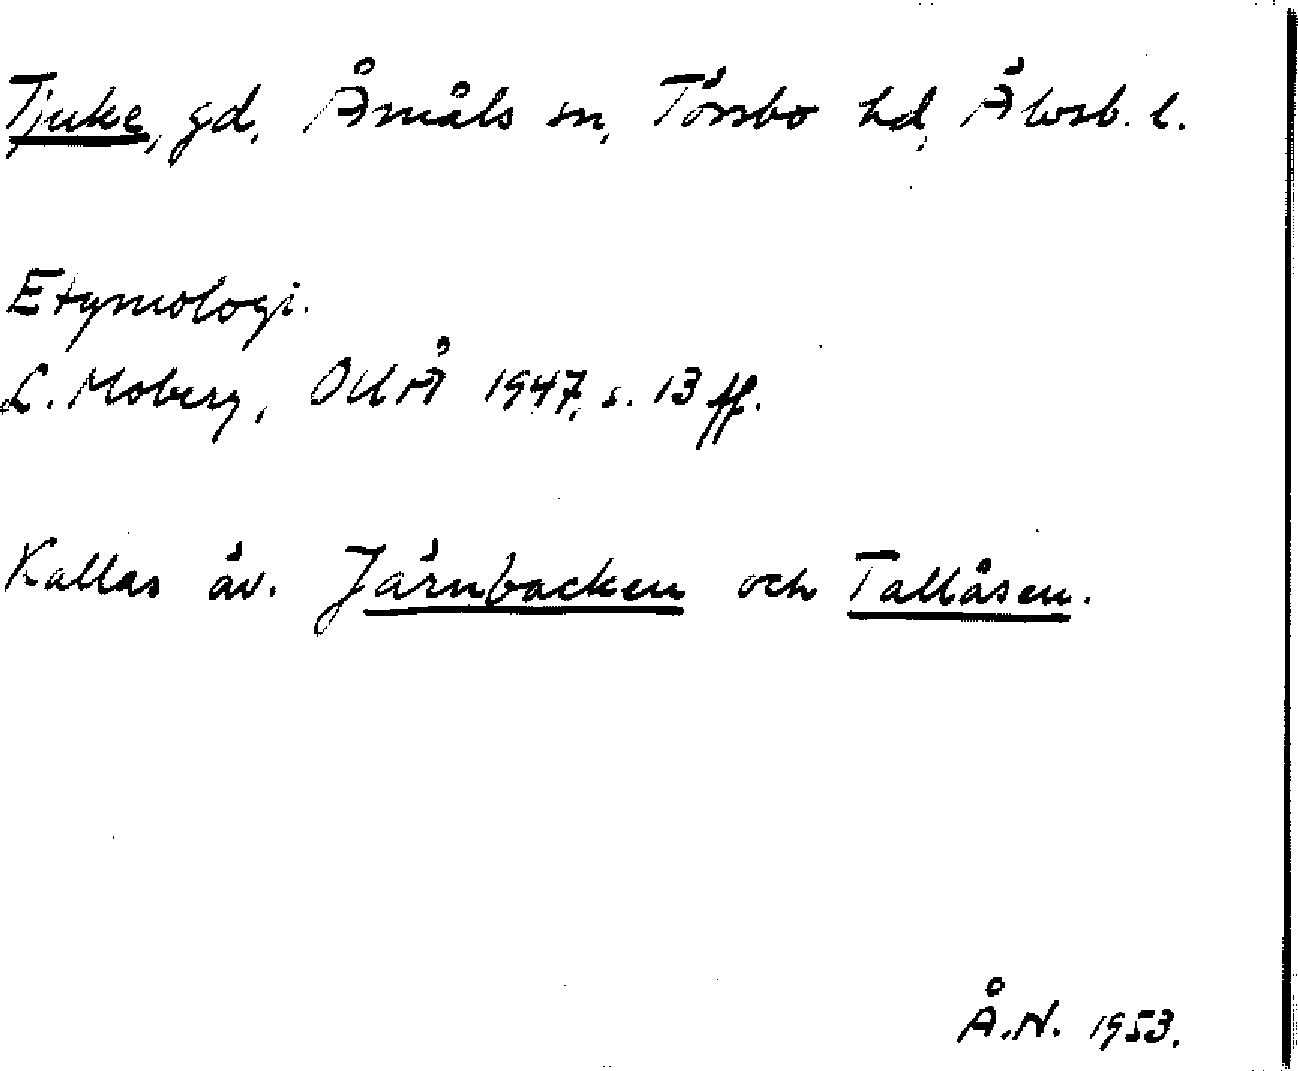 Tjuke, gd, Åmåls sn, Tössbo hd, Älvsb. l.
Etymologi.
L. Moberg, OUÅ 1947, s. 13 ff.
Kallas äv. Järnbacken och Tallåsen.
Å.N. 1953.